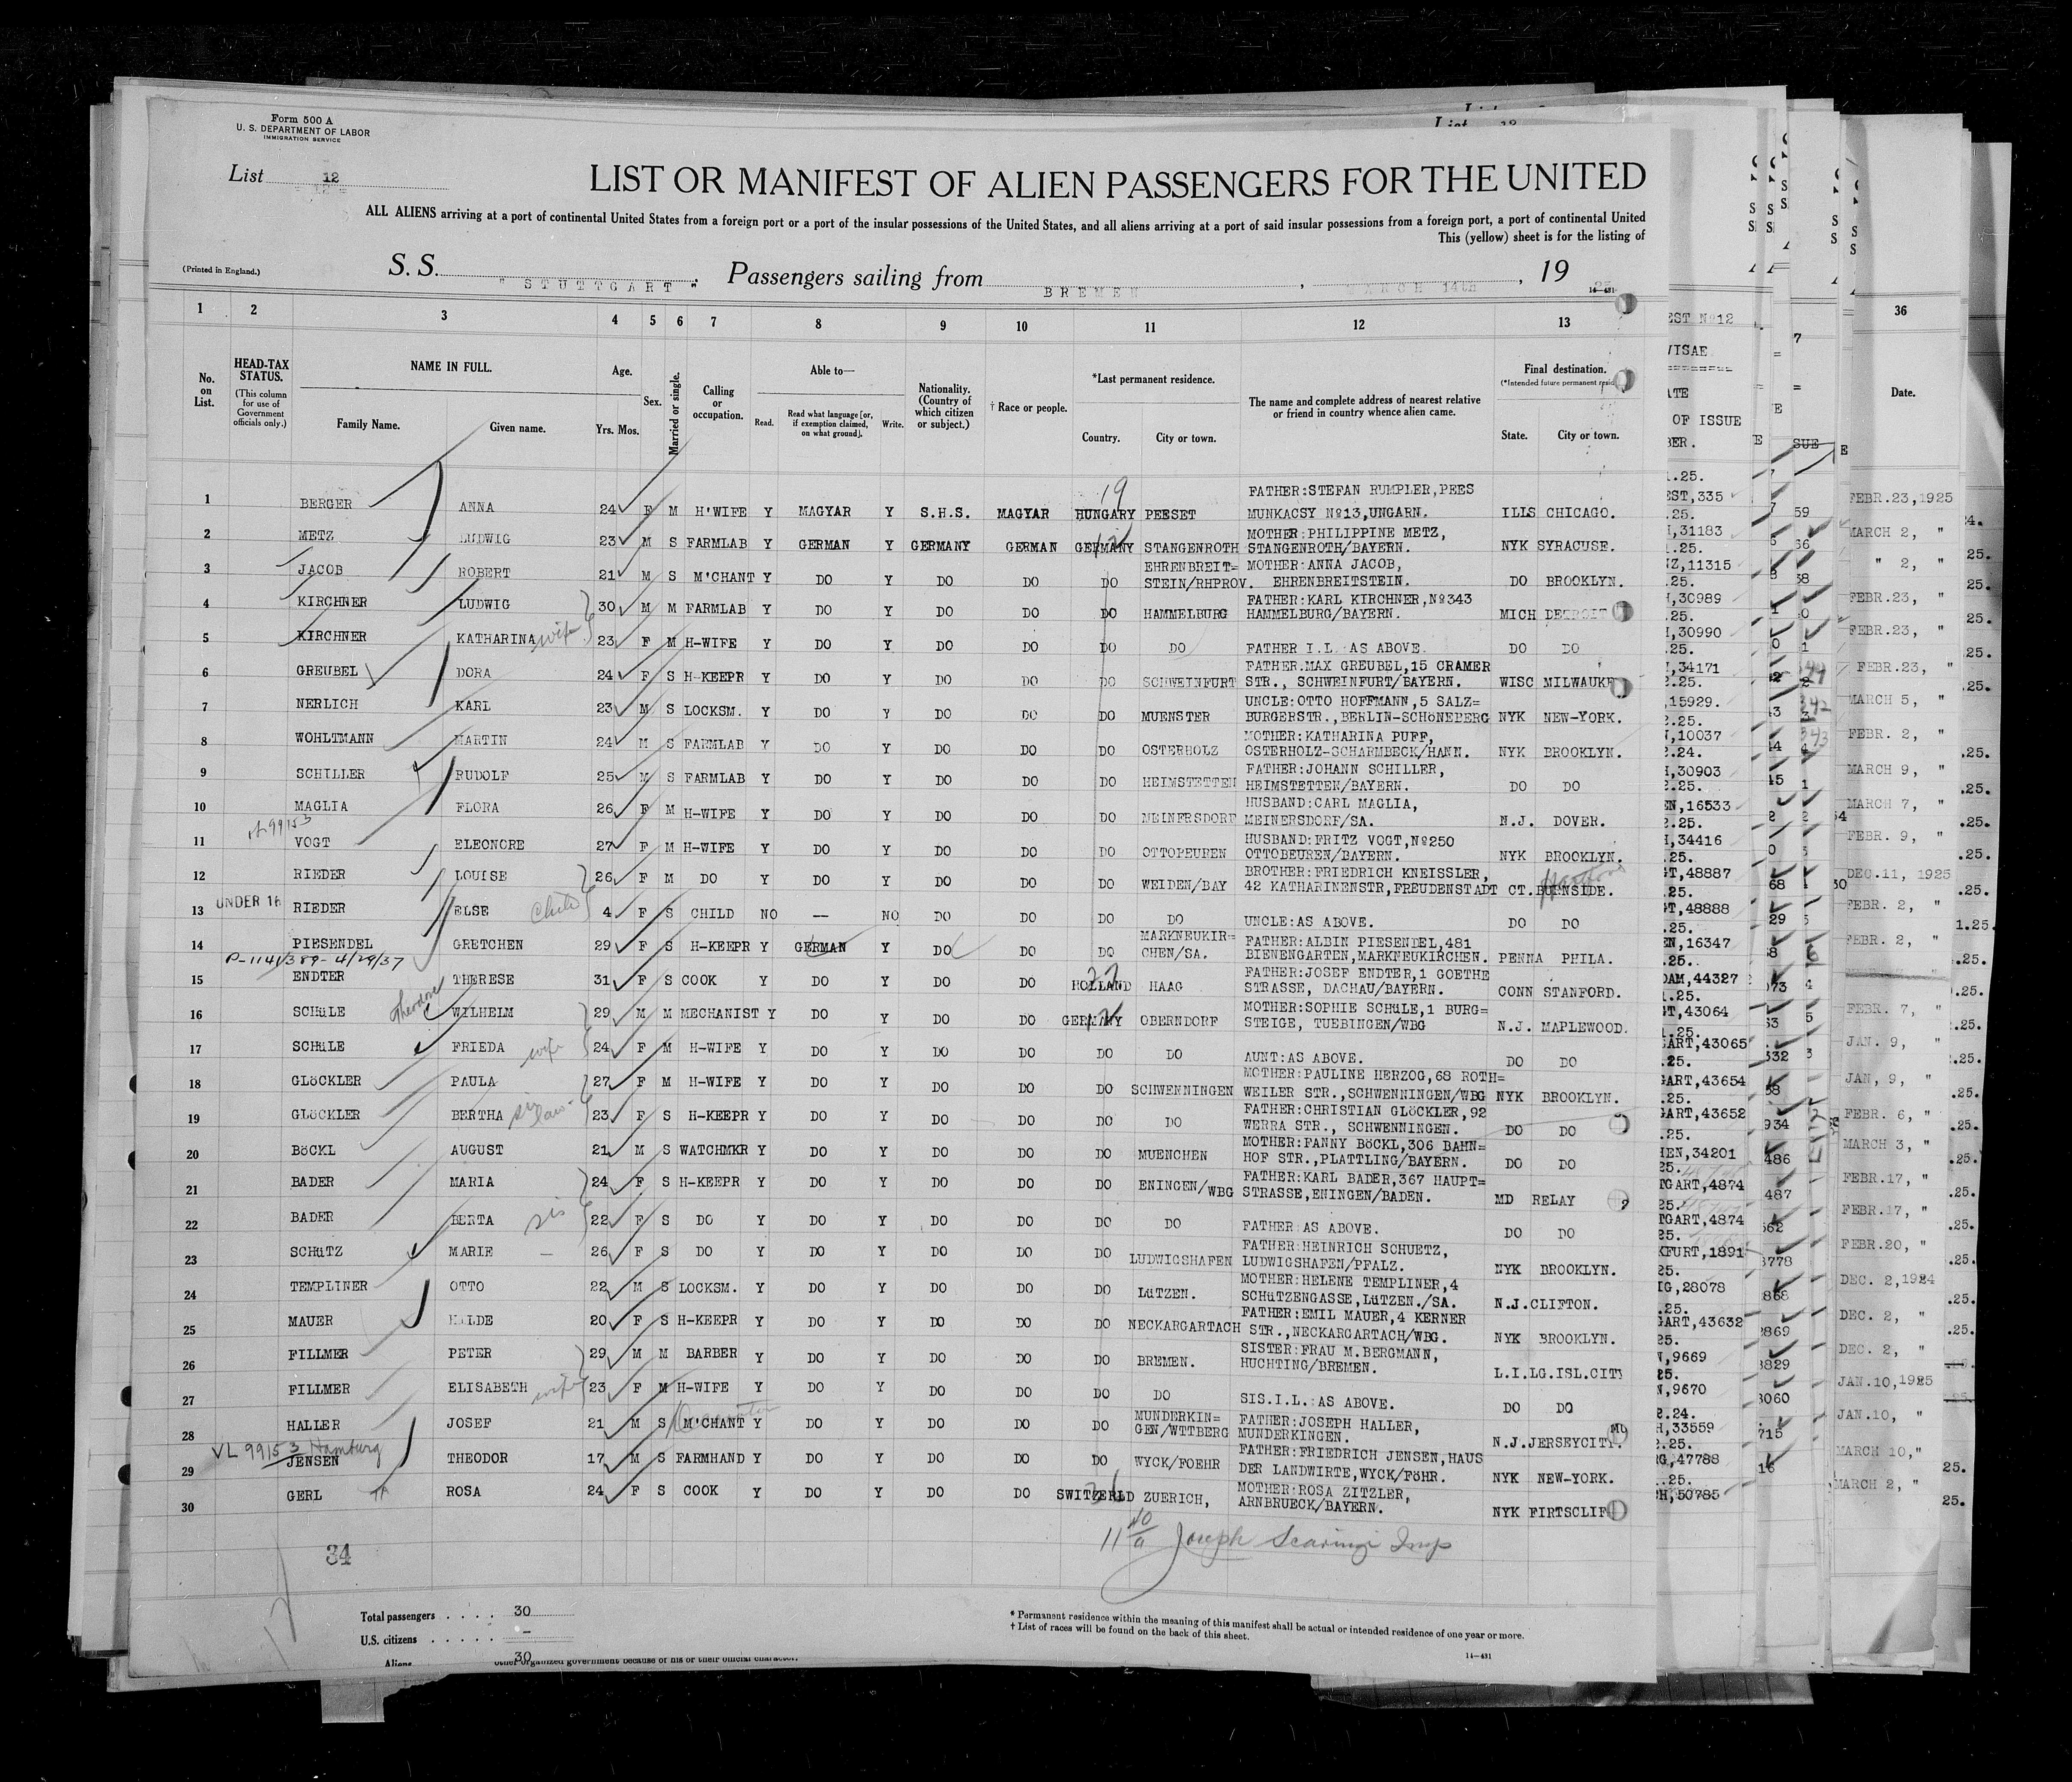 Form 500 A
U. S. DEPARTMENT OF LABOR
IMMIGRATION SERVICE
List 12
LIST OR MANIFEST OF ALIEN PASSENGERS FOR THE UNITED
ALL ALIENS arriving at a port of continental United States from a foreign port or a port of the insular possessions of the United States, and all aliens arriving at a port of said insular possessions from a foreign port, a port of continental United
This (yellow) sheet is for the listing of
(Printed in England.)
S. S. "STUTTGART", Passengers sailing from BREMEN, MARCH 14th, 19 25
14—431
1 2 3 4 5 6 7 8 9 10 11 12 13
No. on List.
HEAD-TAX STATUS.
(This column for use of Government officials only.)
NAME IN FULL.
Family Name. Given name.
Age.
Yrs. Mos.
Sex.
Married or single.
Calling or occupation.
Able to—
Read. Read what language [or, if exemption claimed, on what ground]. Write.
Nationality. (Country of which citizen or subject.)
† Race or people.
*Last permanent residence.
Country. City or town.
The name and complete address of nearest relative or friend in country whence alien came.
Final destination.
(*Intended future permanent resid
State. City or town.
1 BERGER ANNA 24 F M H'WIFE Y MAGYAR Y S.H.S. MAGYAR HUNGARY PEESET FATHER:STEFAN RUMPLER,PEES MUNKACSY No13,UNGARN. ILLS CHICAGO.
2 METZ LUDWIG 23 M S FARMLAB Y GERMAN Y GERMANY GERMAN GERMANY STANGENROTH MOTHER:PHILIPPINE METZ, STANGENROTH/BAYERN. NYK SYRACUSE.
3 JACOB ROBERT 21 M S M'CHANT Y DO Y DO DO DO EHRENBREIT= STEIN/RHPROV. MOTHER:ANNA JACOB, EHRENBREITSTEIN. DO BROOKLYN.
4 KIRCHNER LUDWIG 30 M M FARMLAB Y DO Y DO DO DO HAMMELBURG FATHER:KARL KIRCHNER,No343 HAMMELBURG/BAYERN. MICH DETROIT
5 KIRCHNER KATHARINA wife 23 F M H-WIFE Y DO Y DO DO DO DO FATHER I.L. AS ABOVE. DO DO
6 GREUBEL DORA 24 F S H-KEEPR Y DO Y DO DO DO SCHWEINFURT FATHER.MAX GREUBEL,15 CRAMER STR., SCHWEINFURT/BAYERN. WISC MILWAUK
7 NERLICH KARL 23 M S LOCKSM. Y DO Y DO DO DO MUENSTER UNCLE:OTTO HOFFMANN,5 SALZ= BURGERSTR.,BERLIN-SCHöNEBERG NYK NEW-YORK.
8 WOHLTMANN MARTIN 24 M S FARMLAB Y DO Y DO DO DO OSTERHOLZ MOTHER:KATHARINA PUFF, OSTERHOLZ-SCHARMBECK/HANN. NYK BROOKLYN.
9 SCHILLER RUDOLF 25 M S FARMLAB Y DO Y DO DO DO HEIMSTETTEN FATHER:JOHANN SCHILLER, HEIMSTETTEN/BAYERN. DO DO
10 MAGLIA FLORA 26 F M H-WIFE Y DO Y DO DO DO MEINERSDORF HUSBAND:CARL MAGLIA, MEINERSDORF/SA. N.J. DOVER.
11 VOGT ELEONORE 27 F M H-WIFE Y DO Y DO DO DO OTTOBEUREN HUSBAND:FRITZ VOGT,No250 OTTOBEUREN/BAYERN. NYK BROOKLYN.
12 RIEDER LOUISE 26 F M DO Y DO Y DO DO DO WEIDEN/BAY BROTHER:FRIEDRICH KNEISSLER, 42 KATHARINENSTR,FREUDENSTADT CT. BURNSIDE.
13 UNDER 16 RIEDER ELSE child 4 F S CHILD NO -- NO DO DO DO DO UNCLE:AS ABOVE. DO DO
14 PIESENDEL GRETCHEN 29 F S H-KEEPR Y GERMAN Y DO DO DO MARKNEUKIR= CHEN/SA. FATHER:ALBIN PIESENDEL,481 BIENENGARTEN,MARKNEUKIRCHEN. PENNA PHILA.
P-1141389-4/29/37
15 ENDTER THERESE 31 F S COOK Y DO Y DO DO HOLLAND HAAG FATHER:JOSEF ENDTER,1 GOETHE STRASSE, DACHAU/BAYERN. CONN STANFORD.
16 SCHüLE Theodore WILHELM 29 M M MECHANIST Y DO Y DO DO GERMANY OBERNDORF MOTHER:SOPHIE SCHüLE,1 BURG= STEIGE, TUEBINGEN/WBG N.J. MAPLEWOOD.
17 SCHüLE FRIEDA wife 24 F M H-WIFE Y DO Y DO DO DO DO AUNT:AS ABOVE. DO DO
18 GLöCKLER PAULA 27 F M H-WIFE Y DO Y DO DO DO SCHWENNINGEN MOTHER:PAULINE HERZOG,68 ROTH= WEILER STR.,SCHWENNINGEN/WBG NYK BROOKLYN.
19 GLöCKLER BERTHA sis law 23 F S H-KEEPR Y DO Y DO DO DO DO FATHER:CHRISTIAN GLöCKLER,92 WERRA STR., SCHWENNINGEN. DO DO
20 BöCKL AUGUST 21 M S WATCHMKR Y DO Y DO DO DO MUENCHEN MOTHER:FANNY BöCKL,306 BAHN= HOF STR.,PLATTLING/BAYERN. DO DO
21 BADER MARIA 24 F S H-KEEPR Y DO Y DO DO DO ENINGEN/WBG FATHER:KARL BADER,367 HAUPT= STRASSE,ENINGEN/BADEN. MD RELAY
22 BADER BERTA sis 22 F S DO Y DO Y DO DO DO DO FATHER:AS ABOVE. DO DO
23 SCHüTZ MARIE 26 F S DO Y DO Y DO DO DO LUDWIGSHAFEN FATHER:HEINRICH SCHUETZ, LUDWIGSHAFEN/PFALZ. NYK BROOKLYN.
24 TEMPLINER OTTO 22 M S LOCKSM. Y DO Y DO DO DO LüTZEN. MOTHER:HELENE TEMPLINER,4 SCHüTZENGASSE,LüTZEN./SA. N.J.CLIFTON.
25 MAUER HILDE 20 F S H-KEEPR Y DO Y DO DO DO NECKARGARTACH FATHER:EMIL MAUER,4 KERNER STR.,NECKARGARTACH/WBG. NYK BROOKLYN.
26 FILLMER PETER 29 M M BARBER Y DO Y DO DO DO BREMEN. SISTER:FRAU M.BERGMANN, HUCHTING/BREMEN. L.I.LG.ISL.CITY
27 FILLMER ELISABETH wife 23 F M H-WIFE Y DO Y DO DO DO DO SIS.I.L.:AS ABOVE. DO DO
28 HALLER JOSEF 21 M S M'CHANT Y DO Y DO DO DO MUNDERKIN= GEN/WTTBERG FATHER:JOSEPH HALLER, MUNDERKINGEN. N.J.JERSEYCITY.
VL 99153 Hamburg
29 JENSEN THEODOR 17 M S FARMHAND Y DO Y DO DO DO WYCK/FOEHR FATHER:FRIEDRICH JENSEN,HAUS DER LANDWIRTE,WYCK/FöHR. NYK NEW-YORK.
30 GERL ROSA 24 F S COOK Y DO Y DO DO SWITZERLD ZUERICH, MOTHER:ROSA ZITZLER, ARNBRUECK/BAYERN. NYK FIRTSCLIF
34
Joseph Scaringi Insp
Total passengers . . . . 30
U.S. citizens . . . . . -
Aliens 30
other organized government because of his or their official character.
* Permanent residence within the meaning of this manifest shall be actual or intended residence of one year or more.
† List of races will be found on the back of this sheet.
14—431
EST No12
VISAE
OF ISSUE
EST,335
31183
11315
30989
30990
34171
15929.
10037
30903
16533
34416
48887
48888
16347
DAM,44327
43064
GART,43065
GART,43654
GART,43652
HEN,34201
TGART,4874
TGART,4874
KFURT,1891
28078
GART,43632
9669
9670
33559
47788
50785
36
Date.
FEBR.23,1925
MARCH 2, "
" 2, "
FEBR.23, "
FEBR.23, "
FEBR.23, "
MARCH 5, "
FEBR. 2, "
MARCH 9, "
MARCH 7, "
FEBR. 9, "
DEC.11, 1925
FEBR. 2, "
FEBR. 2, "
FEBR. 7, "
JAN. 9, "
JAN, 9, "
FEBR. 6, "
MARCH 3, "
FEBR.17, "
FEBR.17, "
FEBR.20, "
DEC. 2,1924
DEC. 2, "
DEC. 2, "
JAN.10,1925
JAN.10, "
MARCH 10,"
MARCH 2, "